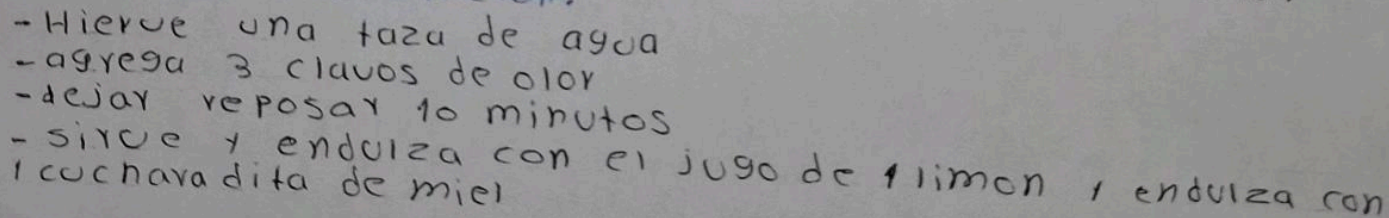 - Hierve una taza de agua
- agrega 3 clavos de olor
- dejar reposar 10 minutos
- sirve y endulza con el jugo de 1 limon y endulza con
1 cucharadita de miel